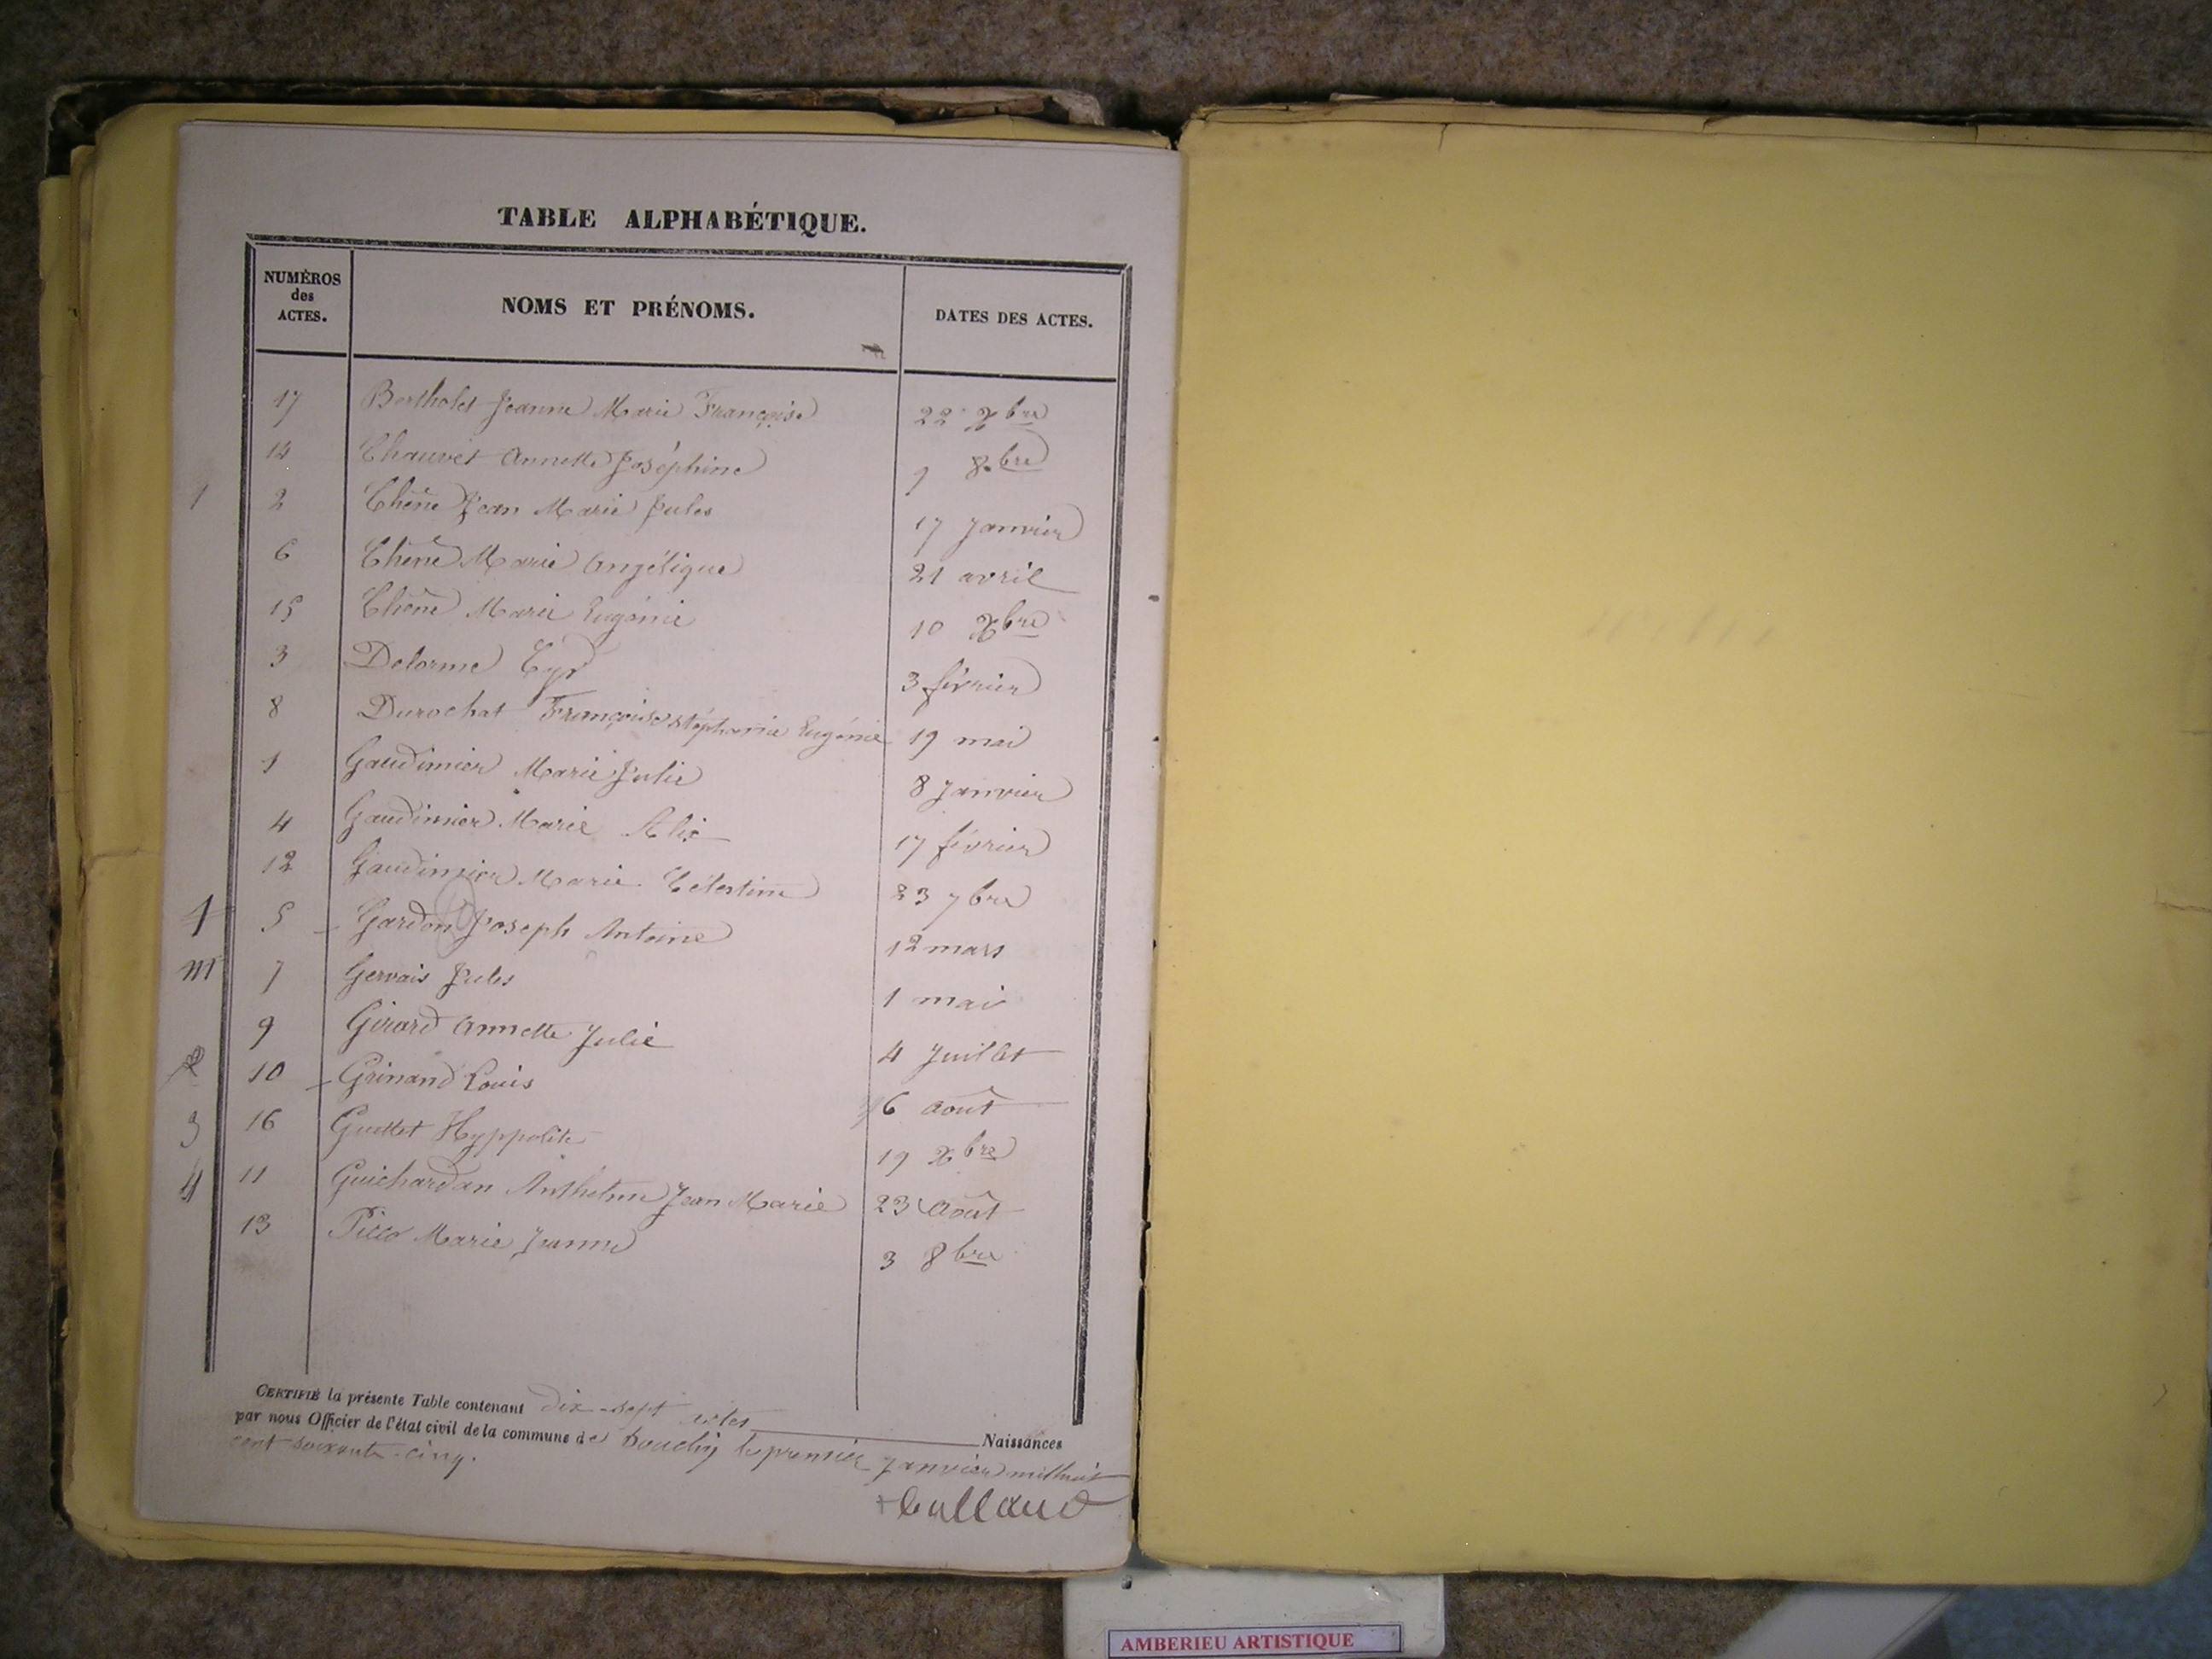 TABLE ALPHABÉTIQUE.
NUMÉROS des ACTES. NOMS ET PRÉNOMS. DATES DES ACTES.
17 Bertholet Jeanne Marie Françoise 22 Xbre
14 Chauvet Annette Joséphine 9 8bre
1 2 Chêne Jean Marie Jules 17 Janvier
6 Chêne Marie Angélique 21 avril
15 Chêne Marie Eugénie 10 Xbre
3 Delorme Cyr 3 février
8 Durochat Françoise Stéphanie Eugénie 19 mai
1 Gaudimier Marie Julie 8 Janvier
4 Gaudimier Marie Alix 17 février
12 Gaudimier Marie Célestine 23 7bre
5 Gardon Joseph Antoine 12 mars
m 7 Gervais Jules 1 mai
9 Girard Annette Julie 4 Juillet
10 Grinand Louis 6 août
3 16 Guettet Hyppolite 19 Xbre
4 11 Guichardan Anthelme Jean Marie 23 Août
13 Marie Jeanne 3 8bre
CERTIFIÉ la présente Table contenant Dix-sept actes Naissances
par nous Officier de l'état civil de la commune de le premier janvier mil huit
cent soixante-cinq.
AMBERIEU ARTISTIQUE